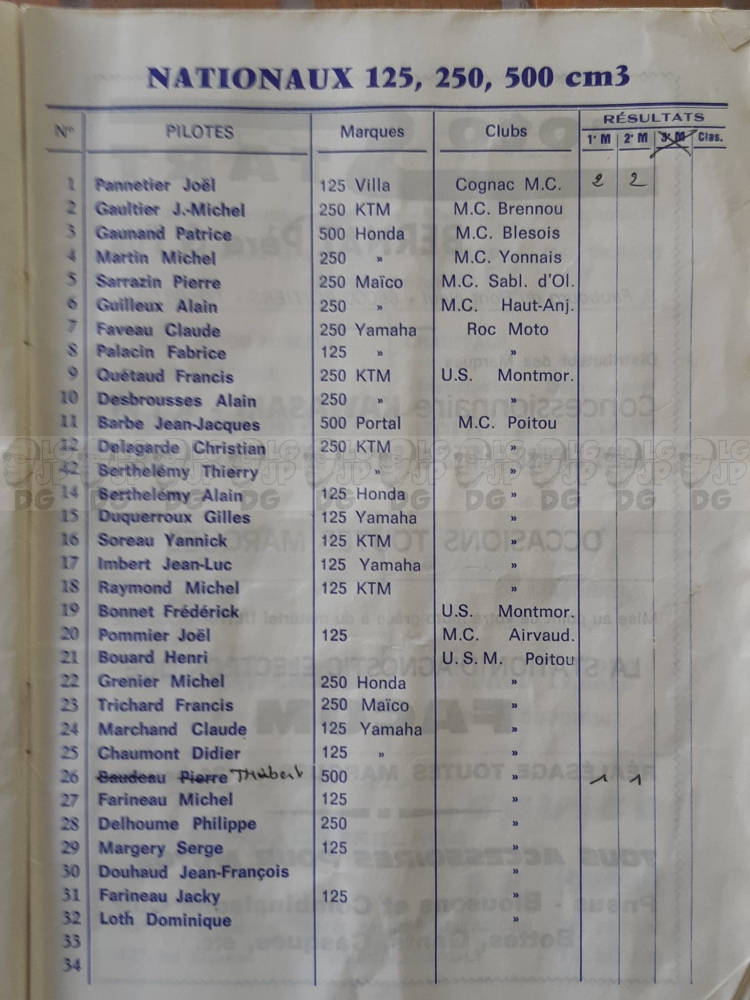 NATIONAUX 125, 250, 500 cm3
N° PILOTES Marques Clubs RÉSULTATS
1e M 2e M 3e M Clas.
1 Pannetier Joël 125 Villa Cognac M.C. 2 2
2 Gaultier J.-Michel 250 KTM M.C. Brennou
3 Gaunand Patrice 500 Honda M.C. Blesois
4 Martin Michel 250 » M.C. Yonnais
5 Sarrazin Pierre 250 Maïco M.C. Sabl. d'Ol.
6 Guilleux Alain 250 » M.C. Haut-Anj.
7 Faveau Claude 250 Yamaha Roc Moto
8 Palacin Fabrice 125 » »
9 Quétaud Francis 250 KTM U.S. Montmor.
10 Desbrousses Alain 250 » »
11 Barbe Jean-Jacques 500 Portal M.C. Poitou
12 Delagarde Christian 250 KTM »
42 Berthelémy Thierry » »
14 Berthelémy Alain 125 Honda »
15 Duquerroux Gilles 125 Yamaha »
16 Soreau Yannick 125 KTM »
17 Imbert Jean-Luc 125 Yamaha »
18 Raymond Michel 125 KTM »
19 Bonnet Frédérick U.S. Montmor.
20 Pommier Joël 125 M.C. Airvaud.
21 Bouard Henri U.S.M. Poitou
22 Grenier Michel 250 Honda »
23 Trichard Francis 250 Maïco »
24 Marchand Claude 125 Yamaha »
25 Chaumont Didier 125 » »
26 Baudeau Pierre Thibert 500 » 1 1
27 Farineau Michel 125 »
28 Delhoume Philippe 250 »
29 Margery Serge 125 »
30 Douhaud Jean-François »
31 Farineau Jacky 125 »
32 Loth Dominique »
33
34